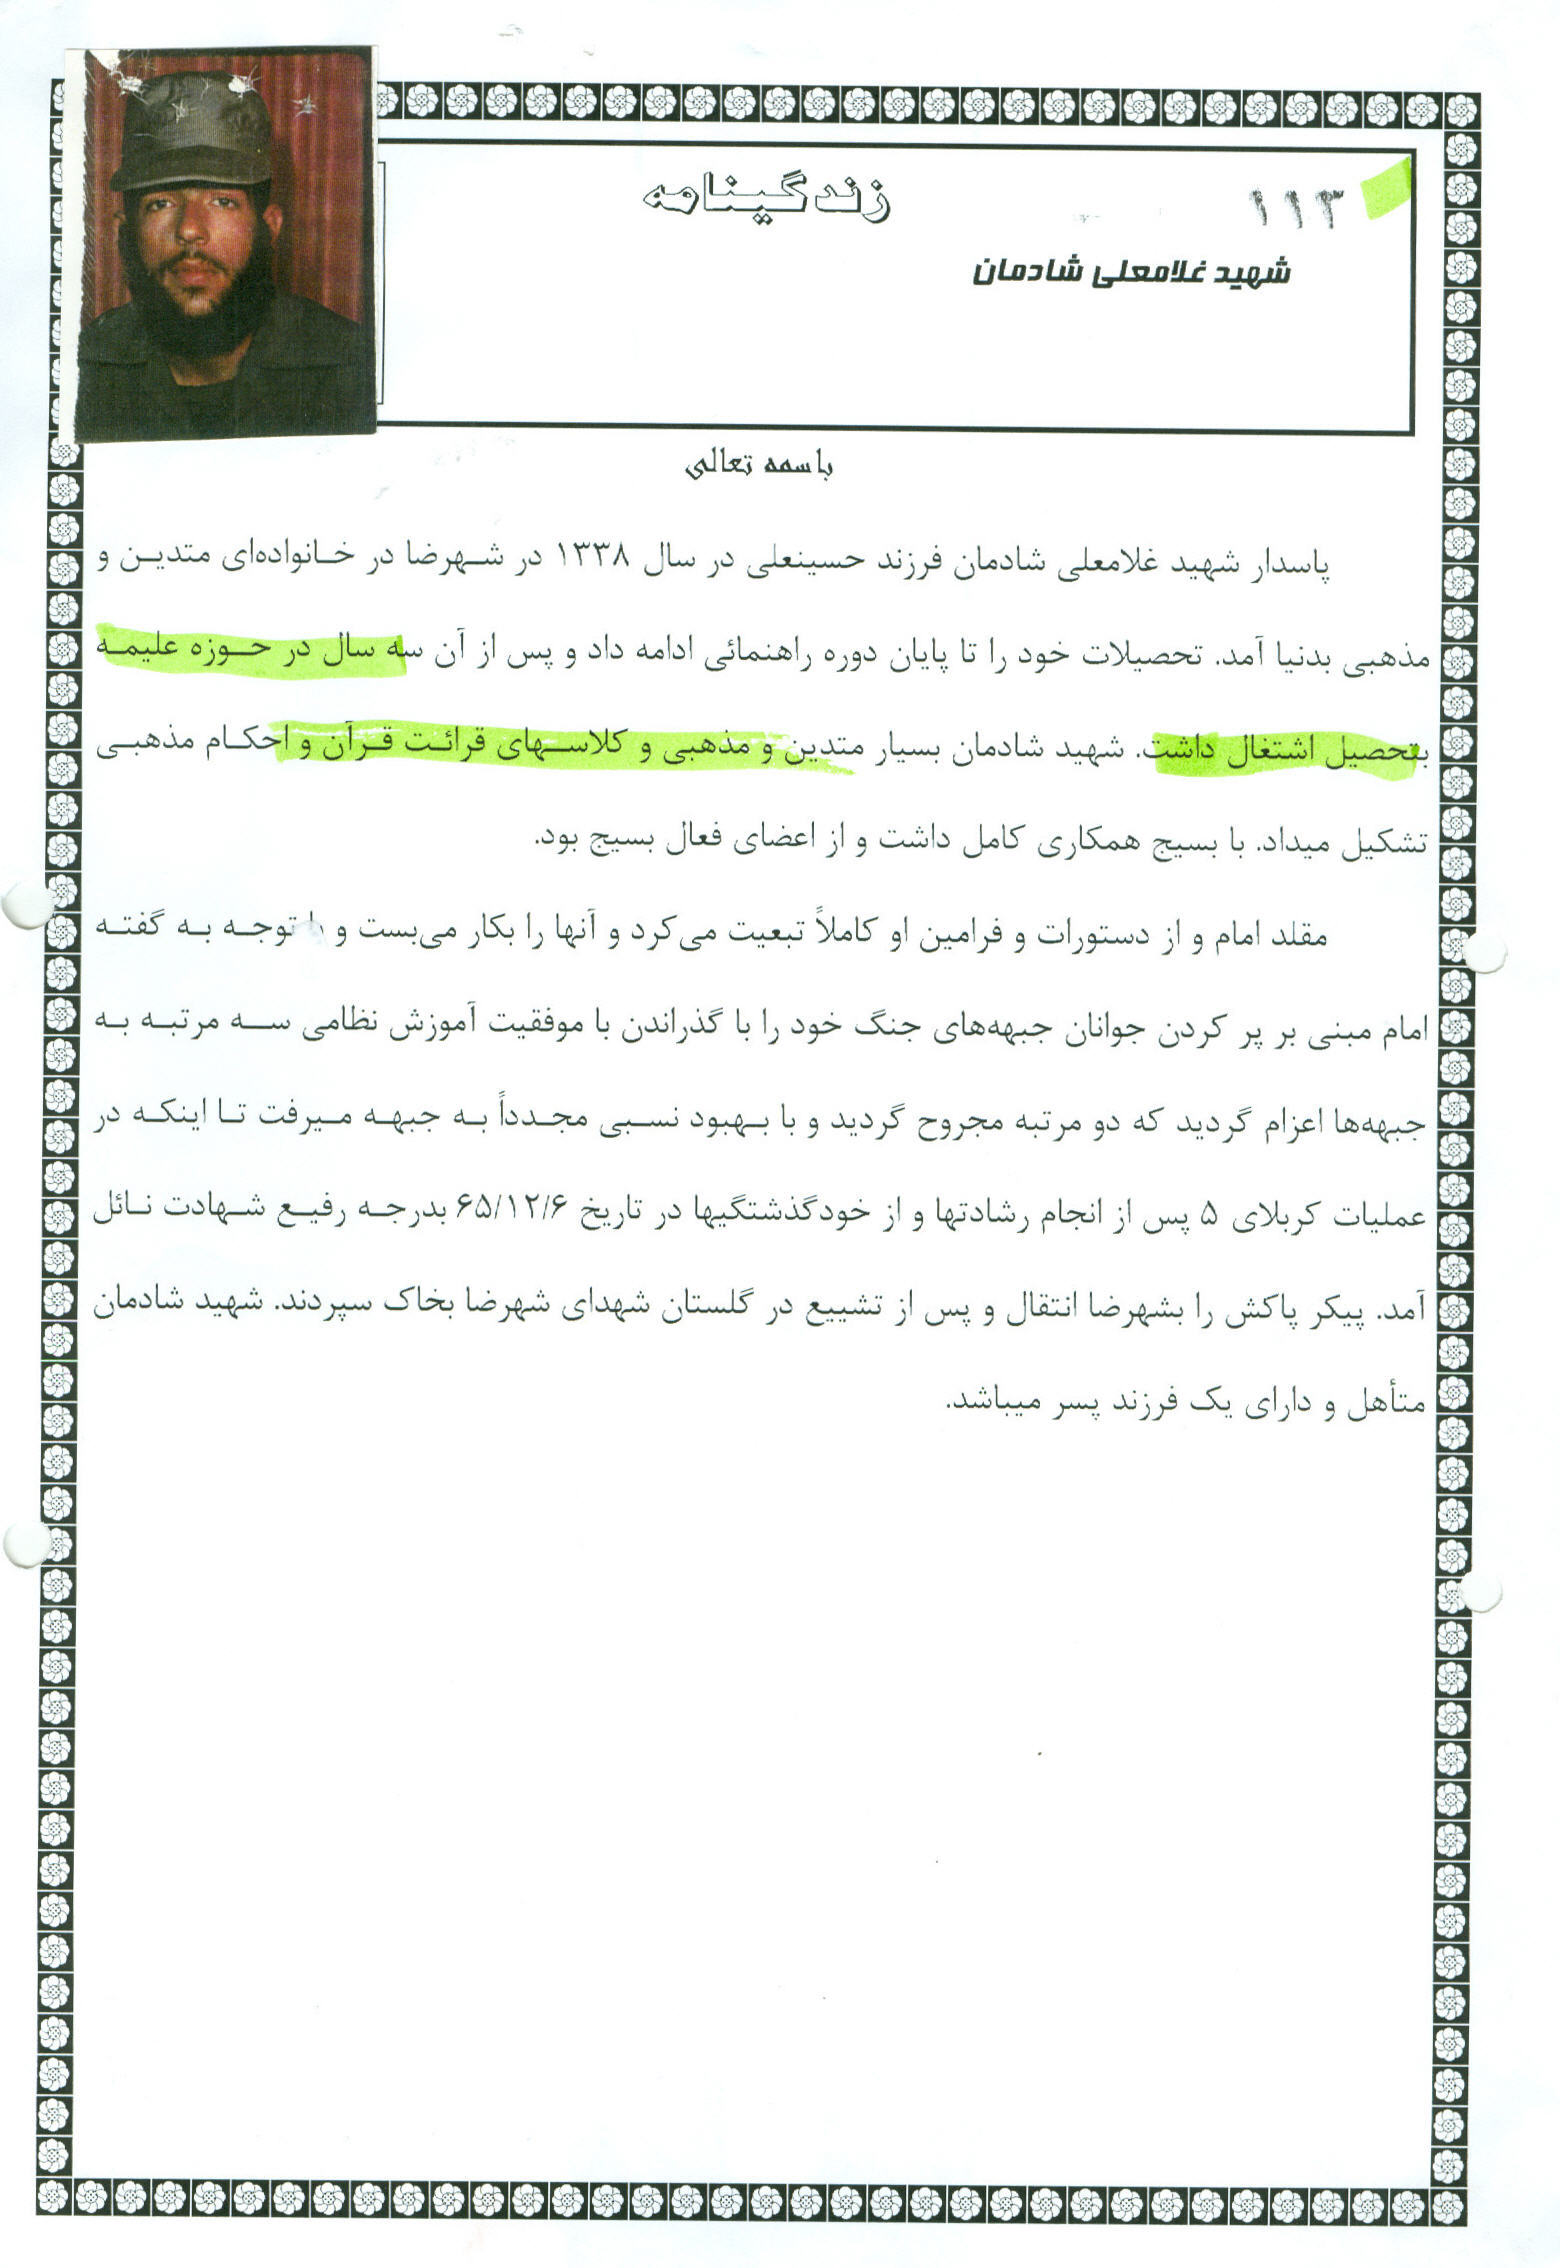 زندگینامه
۱۱۳
شهید غلامعلی شادمان
باسمه تعالی
پاسدار شهید غلامعلی شادمان فرزند حسینعلی در سال ۱۳۳۸ در شهرضا در خانواده‌ای متدین و
مذهبی بدنیا آمد. تحصیلات خود را تا پایان دوره راهنمائی ادامه داد و پس از آن سه سال در حوزه علیمه
بتحصیل اشتغال داشت. شهید شادمان بسیار متدین و مذهبی و کلاسهای قرائت قرآن و احکام مذهبی
تشکیل میداد. با بسیج همکاری کامل داشت و از اعضای فعال بسیج بود.
مقلد امام و از دستورات و فرامین او کاملاً تبعیت می‌کرد و آنها را بکار می‌بست و با توجه به گفته
امام مبنی بر پر کردن جوانان جبهه‌های جنگ خود را با گذراندن با موفقیت آموزش نظامی سه مرتبه به
جبهه‌ها اعزام گردید که دو مرتبه مجروح گردید و با بهبود نسبی مجدداً به جبهه میرفت تا اینکه در
عملیات کربلای ۵ پس از انجام رشادتها و از خودگذشتگیها در تاریخ ۶۵/۱۲/۶ بدرجه رفیع شهادت نائل
آمد. پیکر پاکش را بشهرضا انتقال و پس از تشییع در گلستان شهدای شهرضا بخاک سپردند. شهید شادمان
متأهل و دارای یک فرزند پسر میباشد.